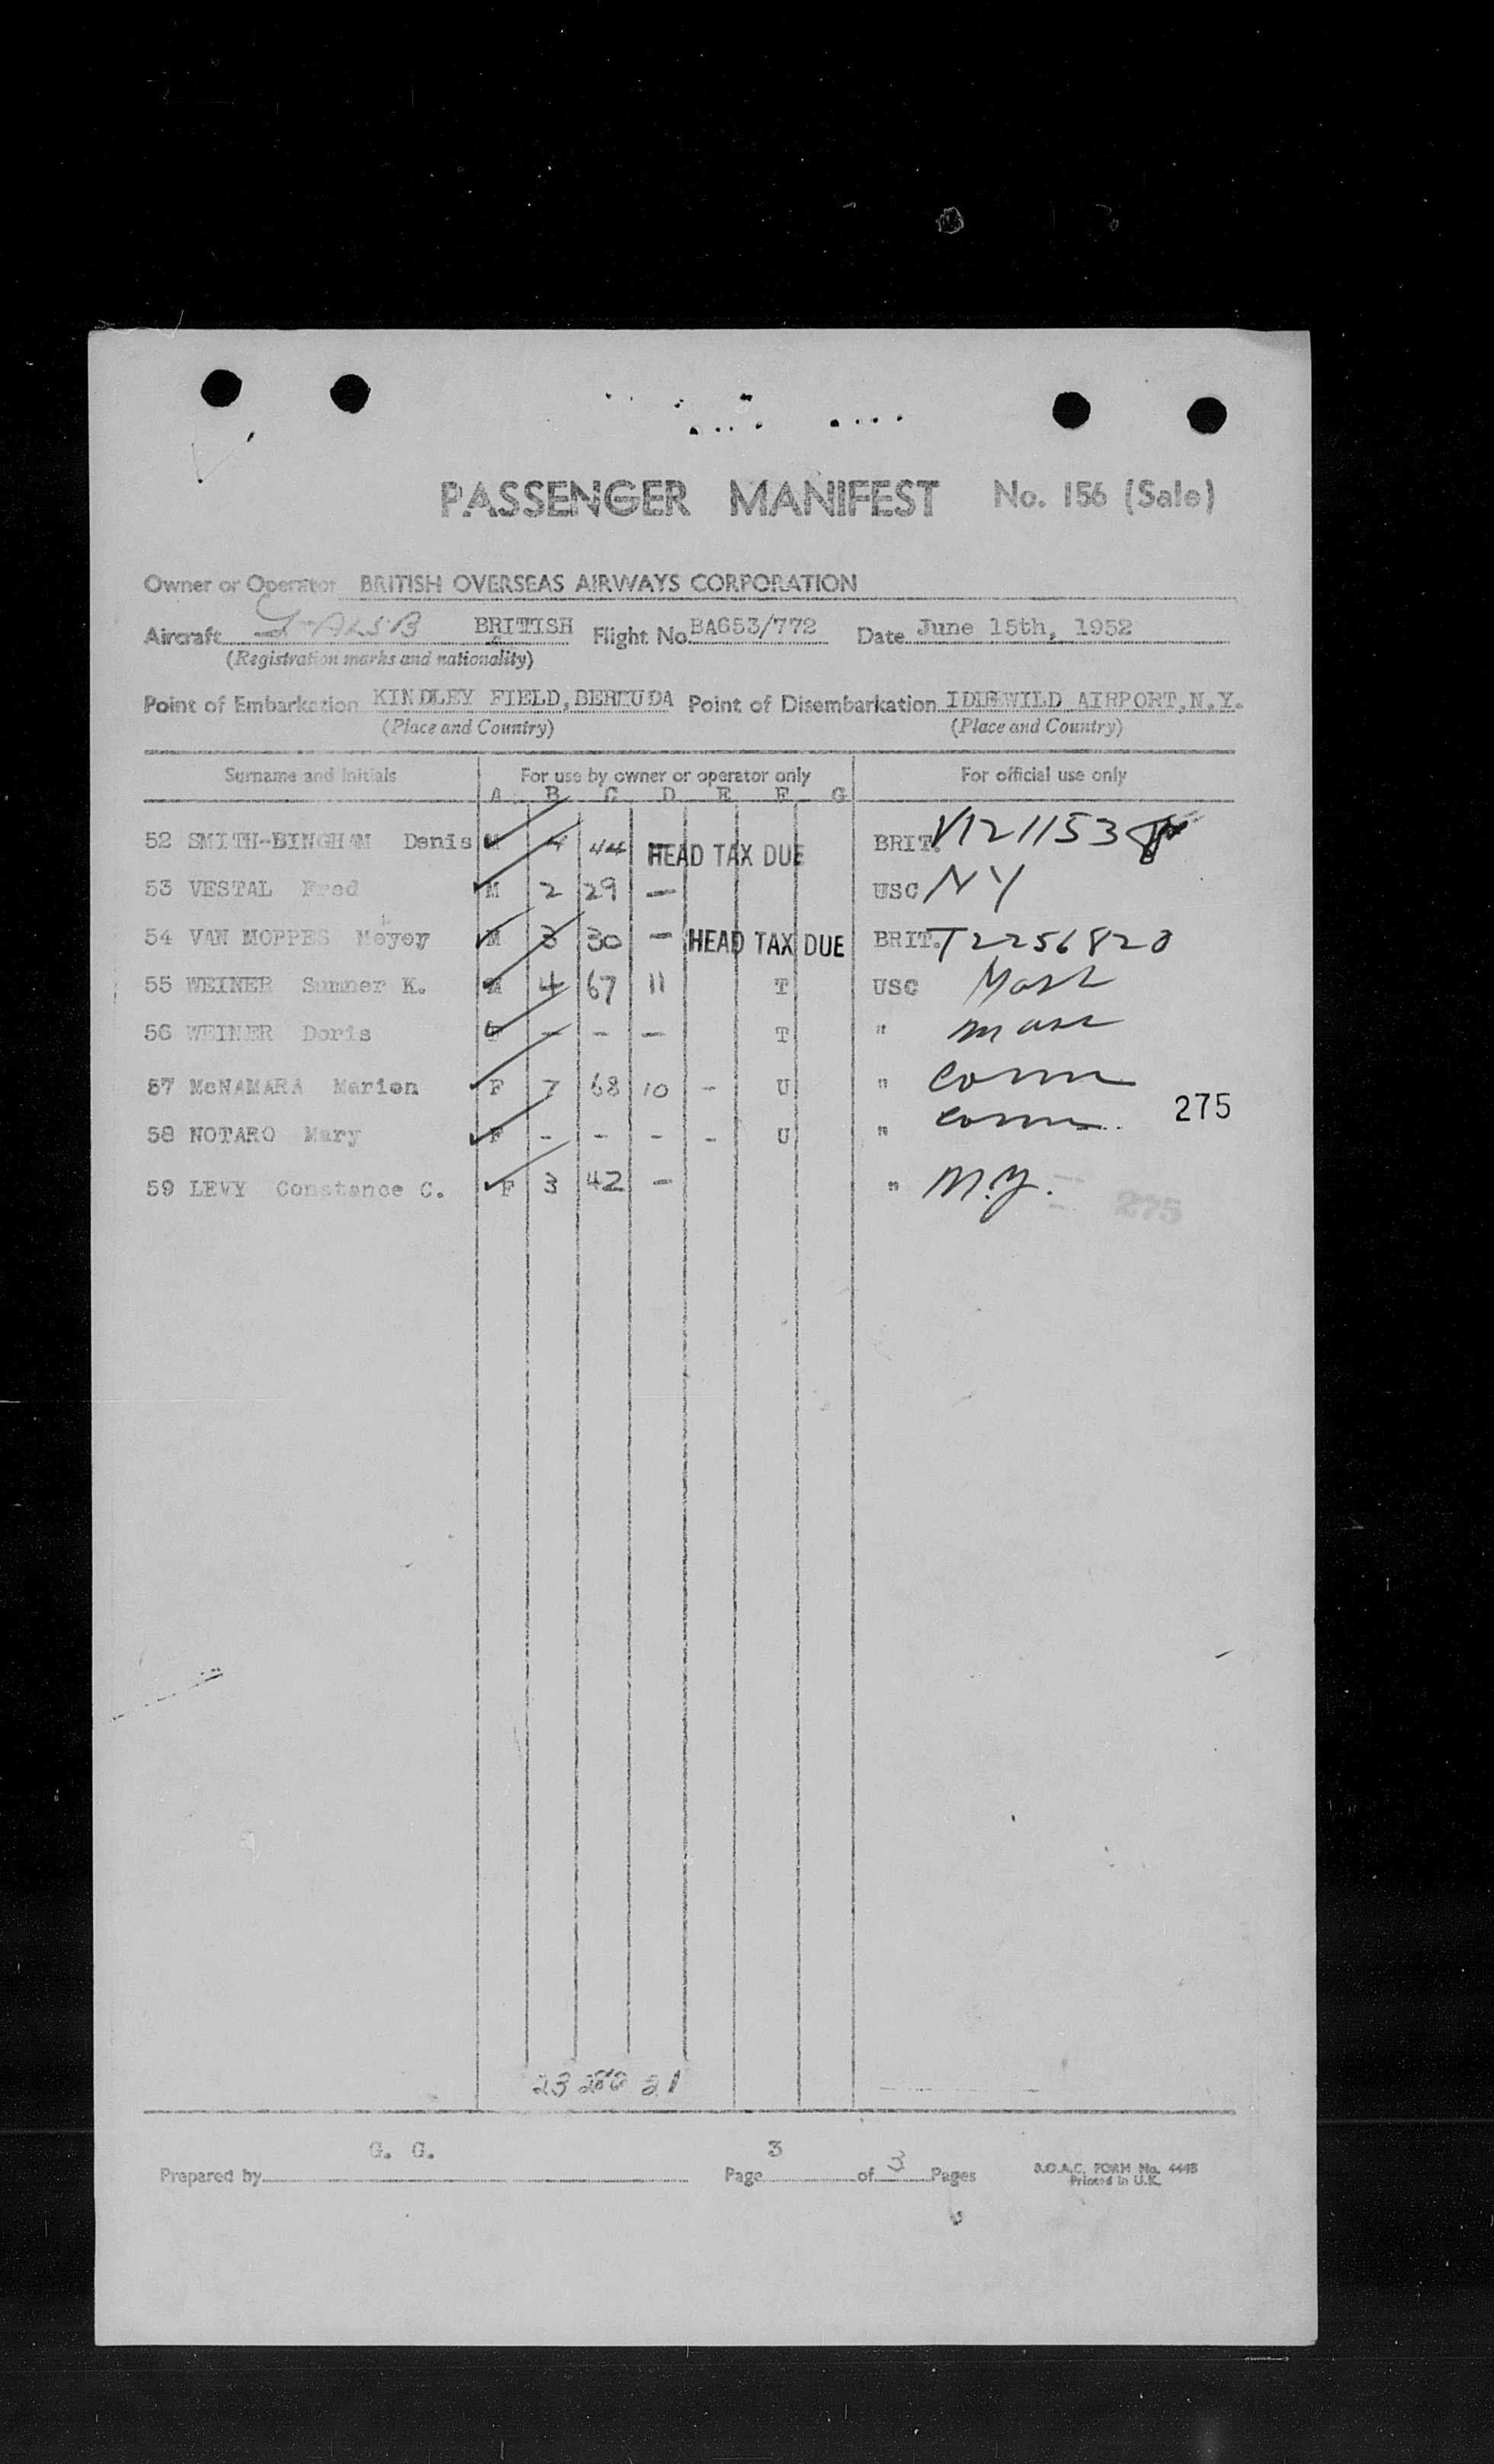 PASSENGER MANIFEST No. 156 (Sale)
Owner or Operator BRITISH OVERSEAS AIRWAYS CORPORATION
Aircraft G-ALSB BRITISH Flight No. BA653/772 Date June 15th, 1952
(Registration marks and nationality)
Point of Embarkation KINDLEY FIELD, BERMUDA Point of Disembarkation IDLEWILD AIRPORT, N.Y.
(Place and Country) (Place and Country)
Surname and Initials For use by owner or operator only For official use only
A B C D E F G
52 SMITH-BINGHAM Denis M 4 44 HEAD TAX DUE BRIT. V121153
53 VESTAL Fred M 2 29 — USC NY
54 VAN MOPPES Meyer M 3 30 — HEAD TAX DUE BRIT. T2256820
55 WEINER Sumner K. M 4 67 11 T USC Mass
56 WEINER Doris F — — — T " mass
57 McNAMARA Marion F 7 68 10 - U " conn
58 NOTARO Mary F - - - - U " conn. 275
59 LEVY Constance C. F 3 42 — " N.Y. 275
23 280 21
G. G. 3
Prepared by Page of 3 Pages B.O.A.C. FORM No. 444B
Printed in U.K.